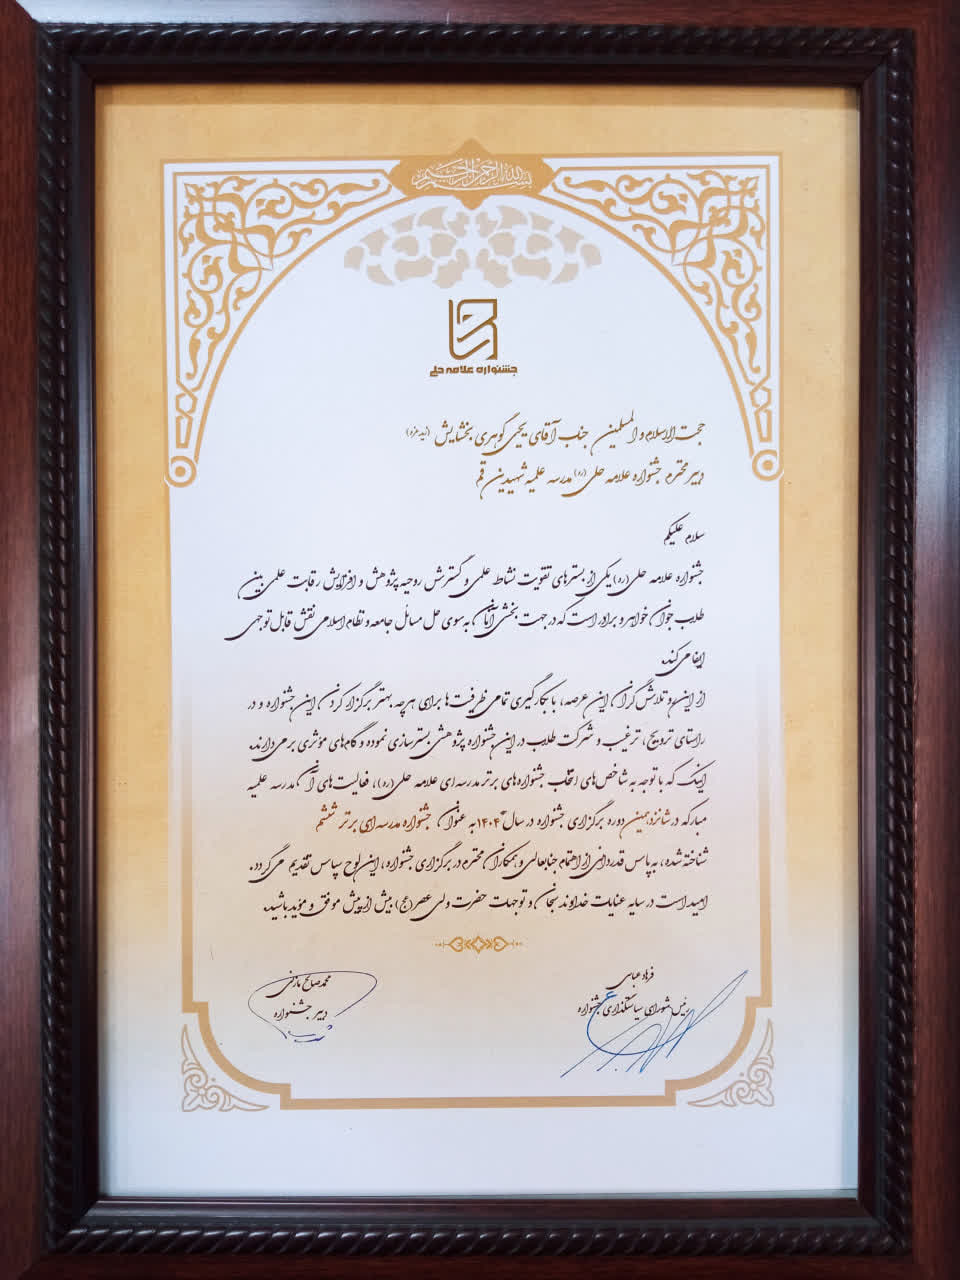 بسم الله الرحمن الرحیم
جشنواره علامه حلی
حجت الاسلام و المسلمین جناب آقای یحیی گوهری بخشایش (زید عزه)
دبیر محترم جشنواره علامه حلی (ره) مدرسه علمیه شهیدین قم
سلام علیکم
جشنواره علامه حلی (ره) یکی از بسترهای تقویت نشاط علمی و گسترش روحیه پژوهش و افزایش رقابت علمی بین
طلاب جوان خواهر و برادر است که در جهت بخشی آنان به سوی حل مسائل جامعه و نظام اسلامی نقش قابل توجهی
ایفا می کند.
از این رو تلاش گران این عرصه، با بکارگیری تمامی ظرفیت ها برای هرچه بهتر برگزار کردن این جشنواره و در
راستای ترویج، ترغیب و شرکت طلاب در این جشنواره پژوهشی بسترسازی نموده و گام های مؤثری برمی دارند.
اینک که با توجه به شاخص های انتخاب جشنواره های برتر مدرسه ای علامه حلی (ره)، فعالیت های آن مدرسه علمیه
مبارکه در شانزدهمین دوره برگزاری جشنواره در سال ۱۴۰۴ به عنوان جشنواره مدرسه ای برتر ششم
شناخته شده، به پاس قدردانی از اهتمام جنابعالی و همکاران محترم در برگزاری جشنواره، این لوح سپاس تقدیم می گردد.
امید است در سایه عنایات خداوند سبحان و توجهات حضرت ولی عصر (عج) بیش از پیش موفق و مؤید باشید.
فرهاد عباسی
رئیس شورای سیاستگذاری جشنواره
محمد صالح مازنی
دبیر جشنواره